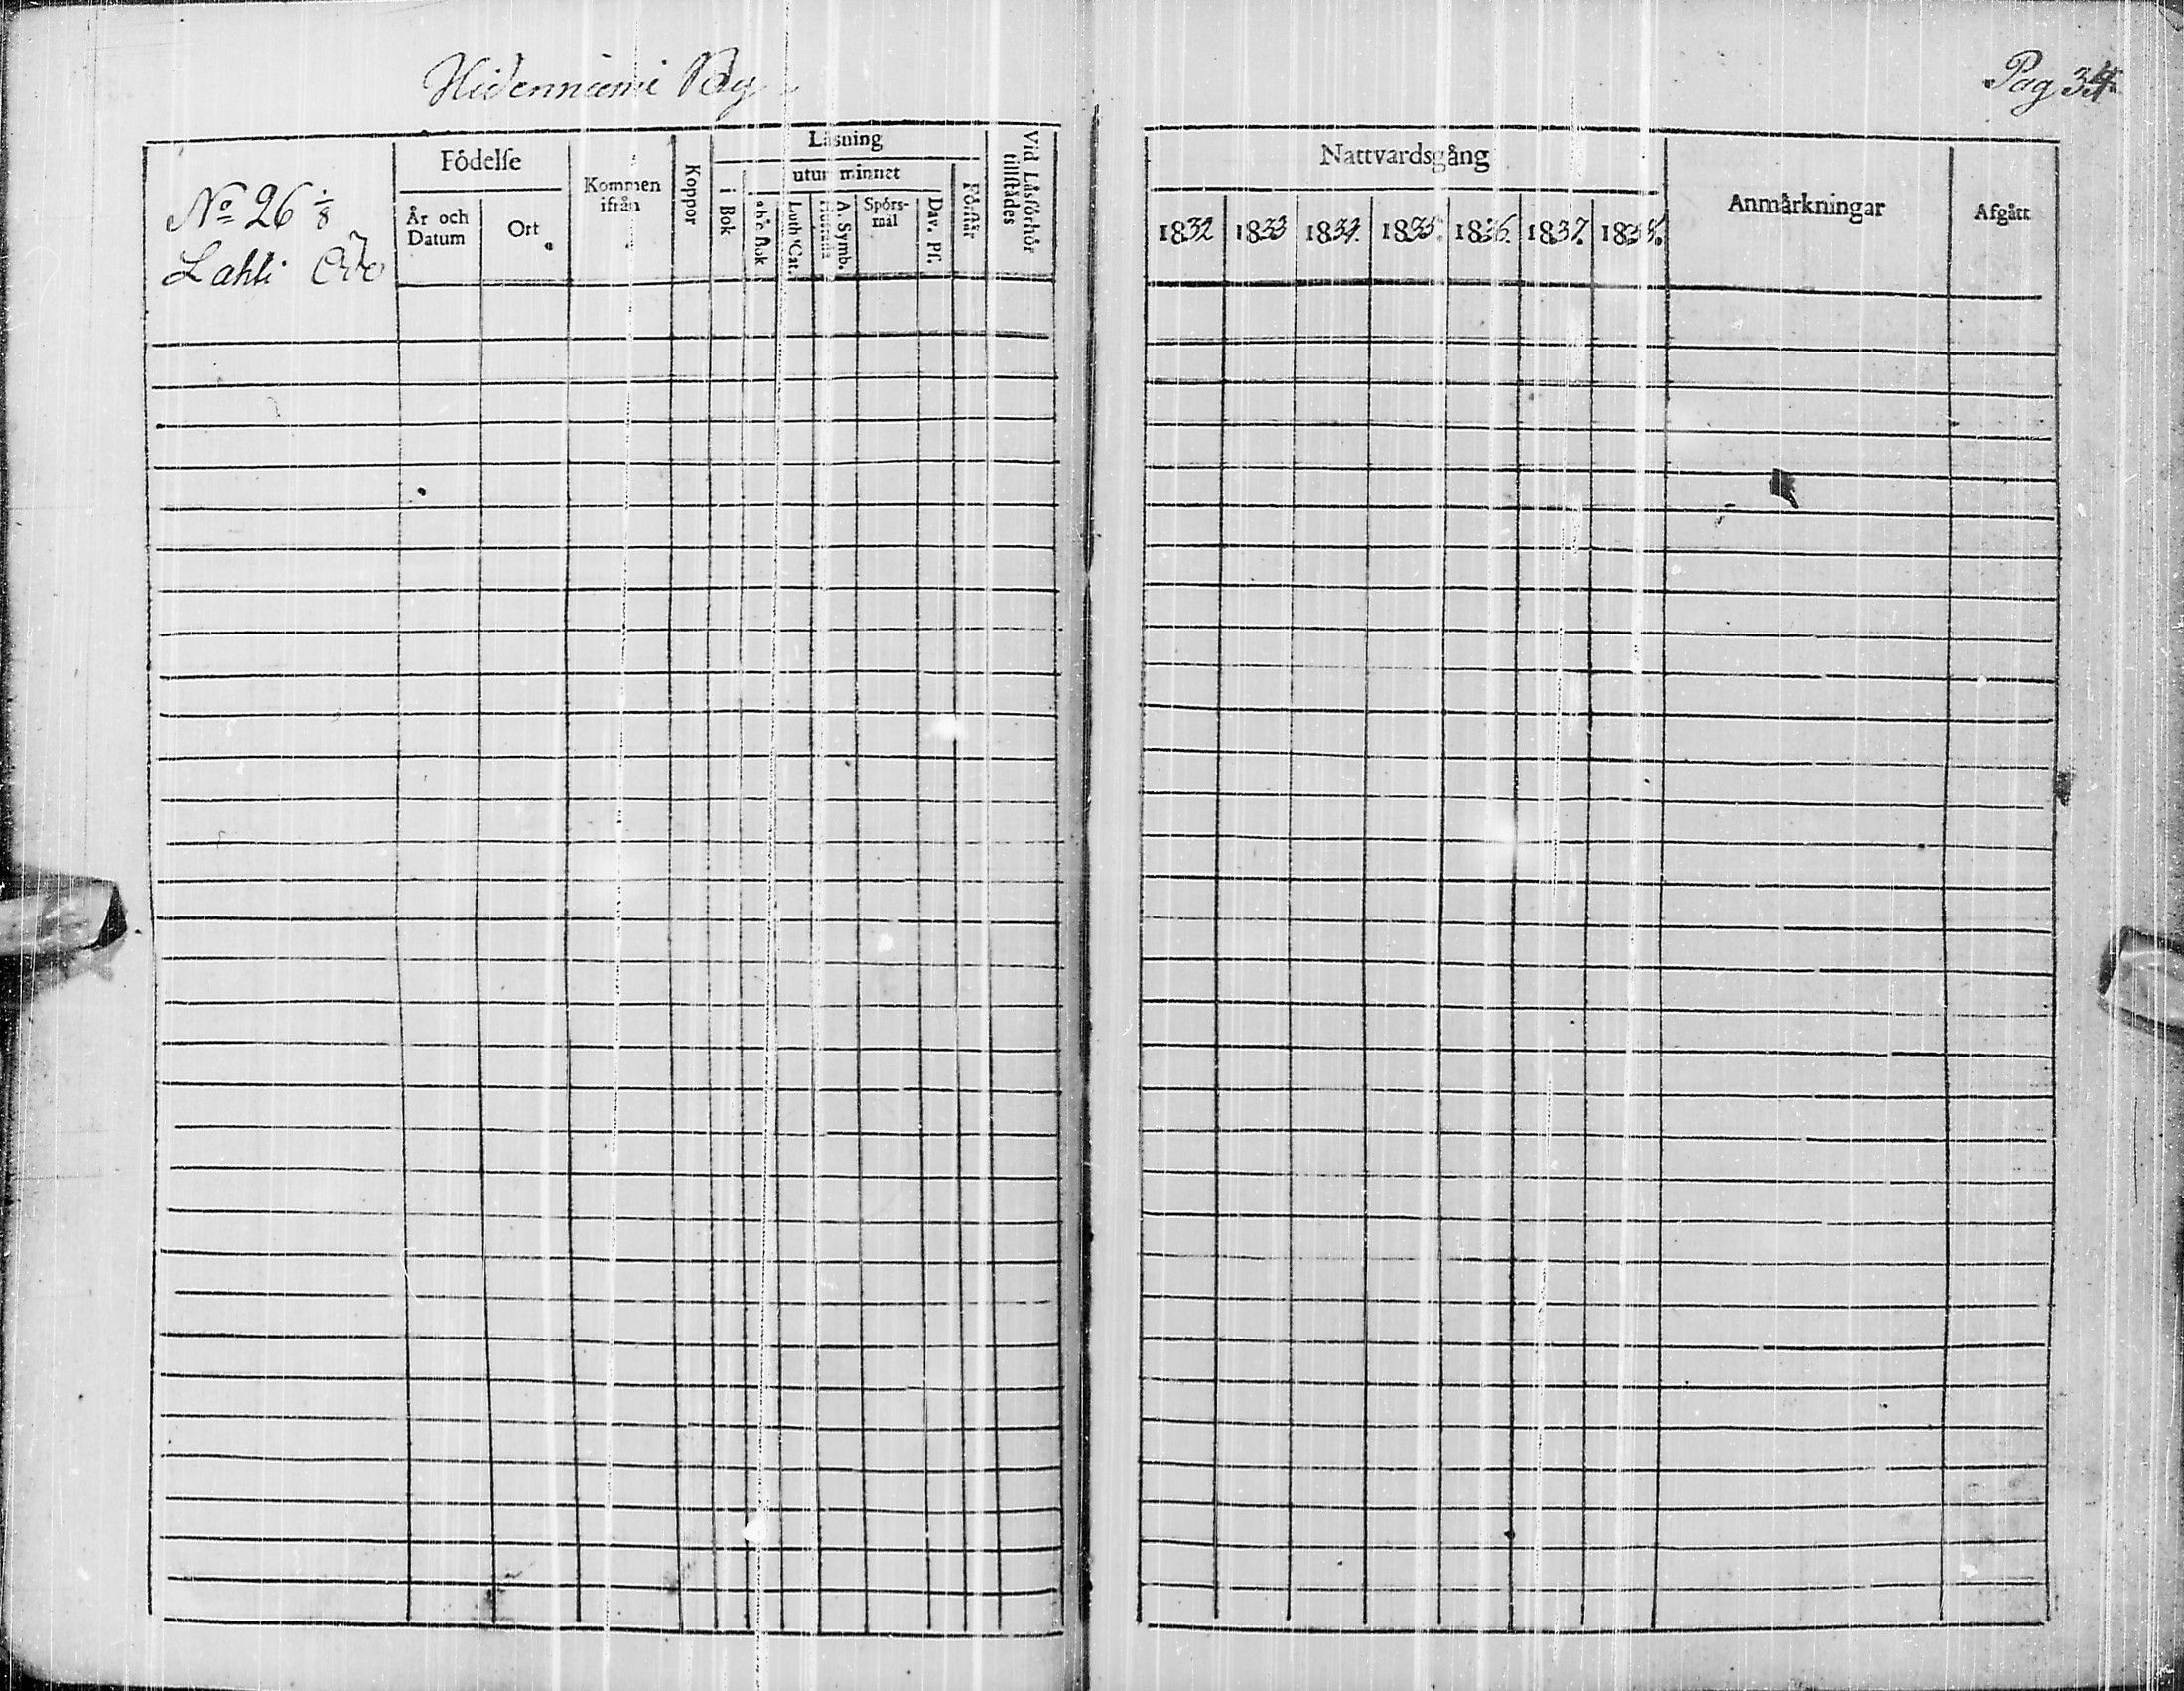 Hidenniemi By
Pag 34
No 26 1/8
Lahti Öde
Födelse
År och Datum
Ort
Kommen ifrån
Koppor
Läsning
i Bok
utur minnet
Luth. Cat.
A. Symb.
Spörsmål
Dav. Pſ.
Förſtår
Vid Läsförhör tillſtädes
Nattvardsgång
1832 1833 1834 1835 1836 1837 1838
Anmärkningar
Afgått